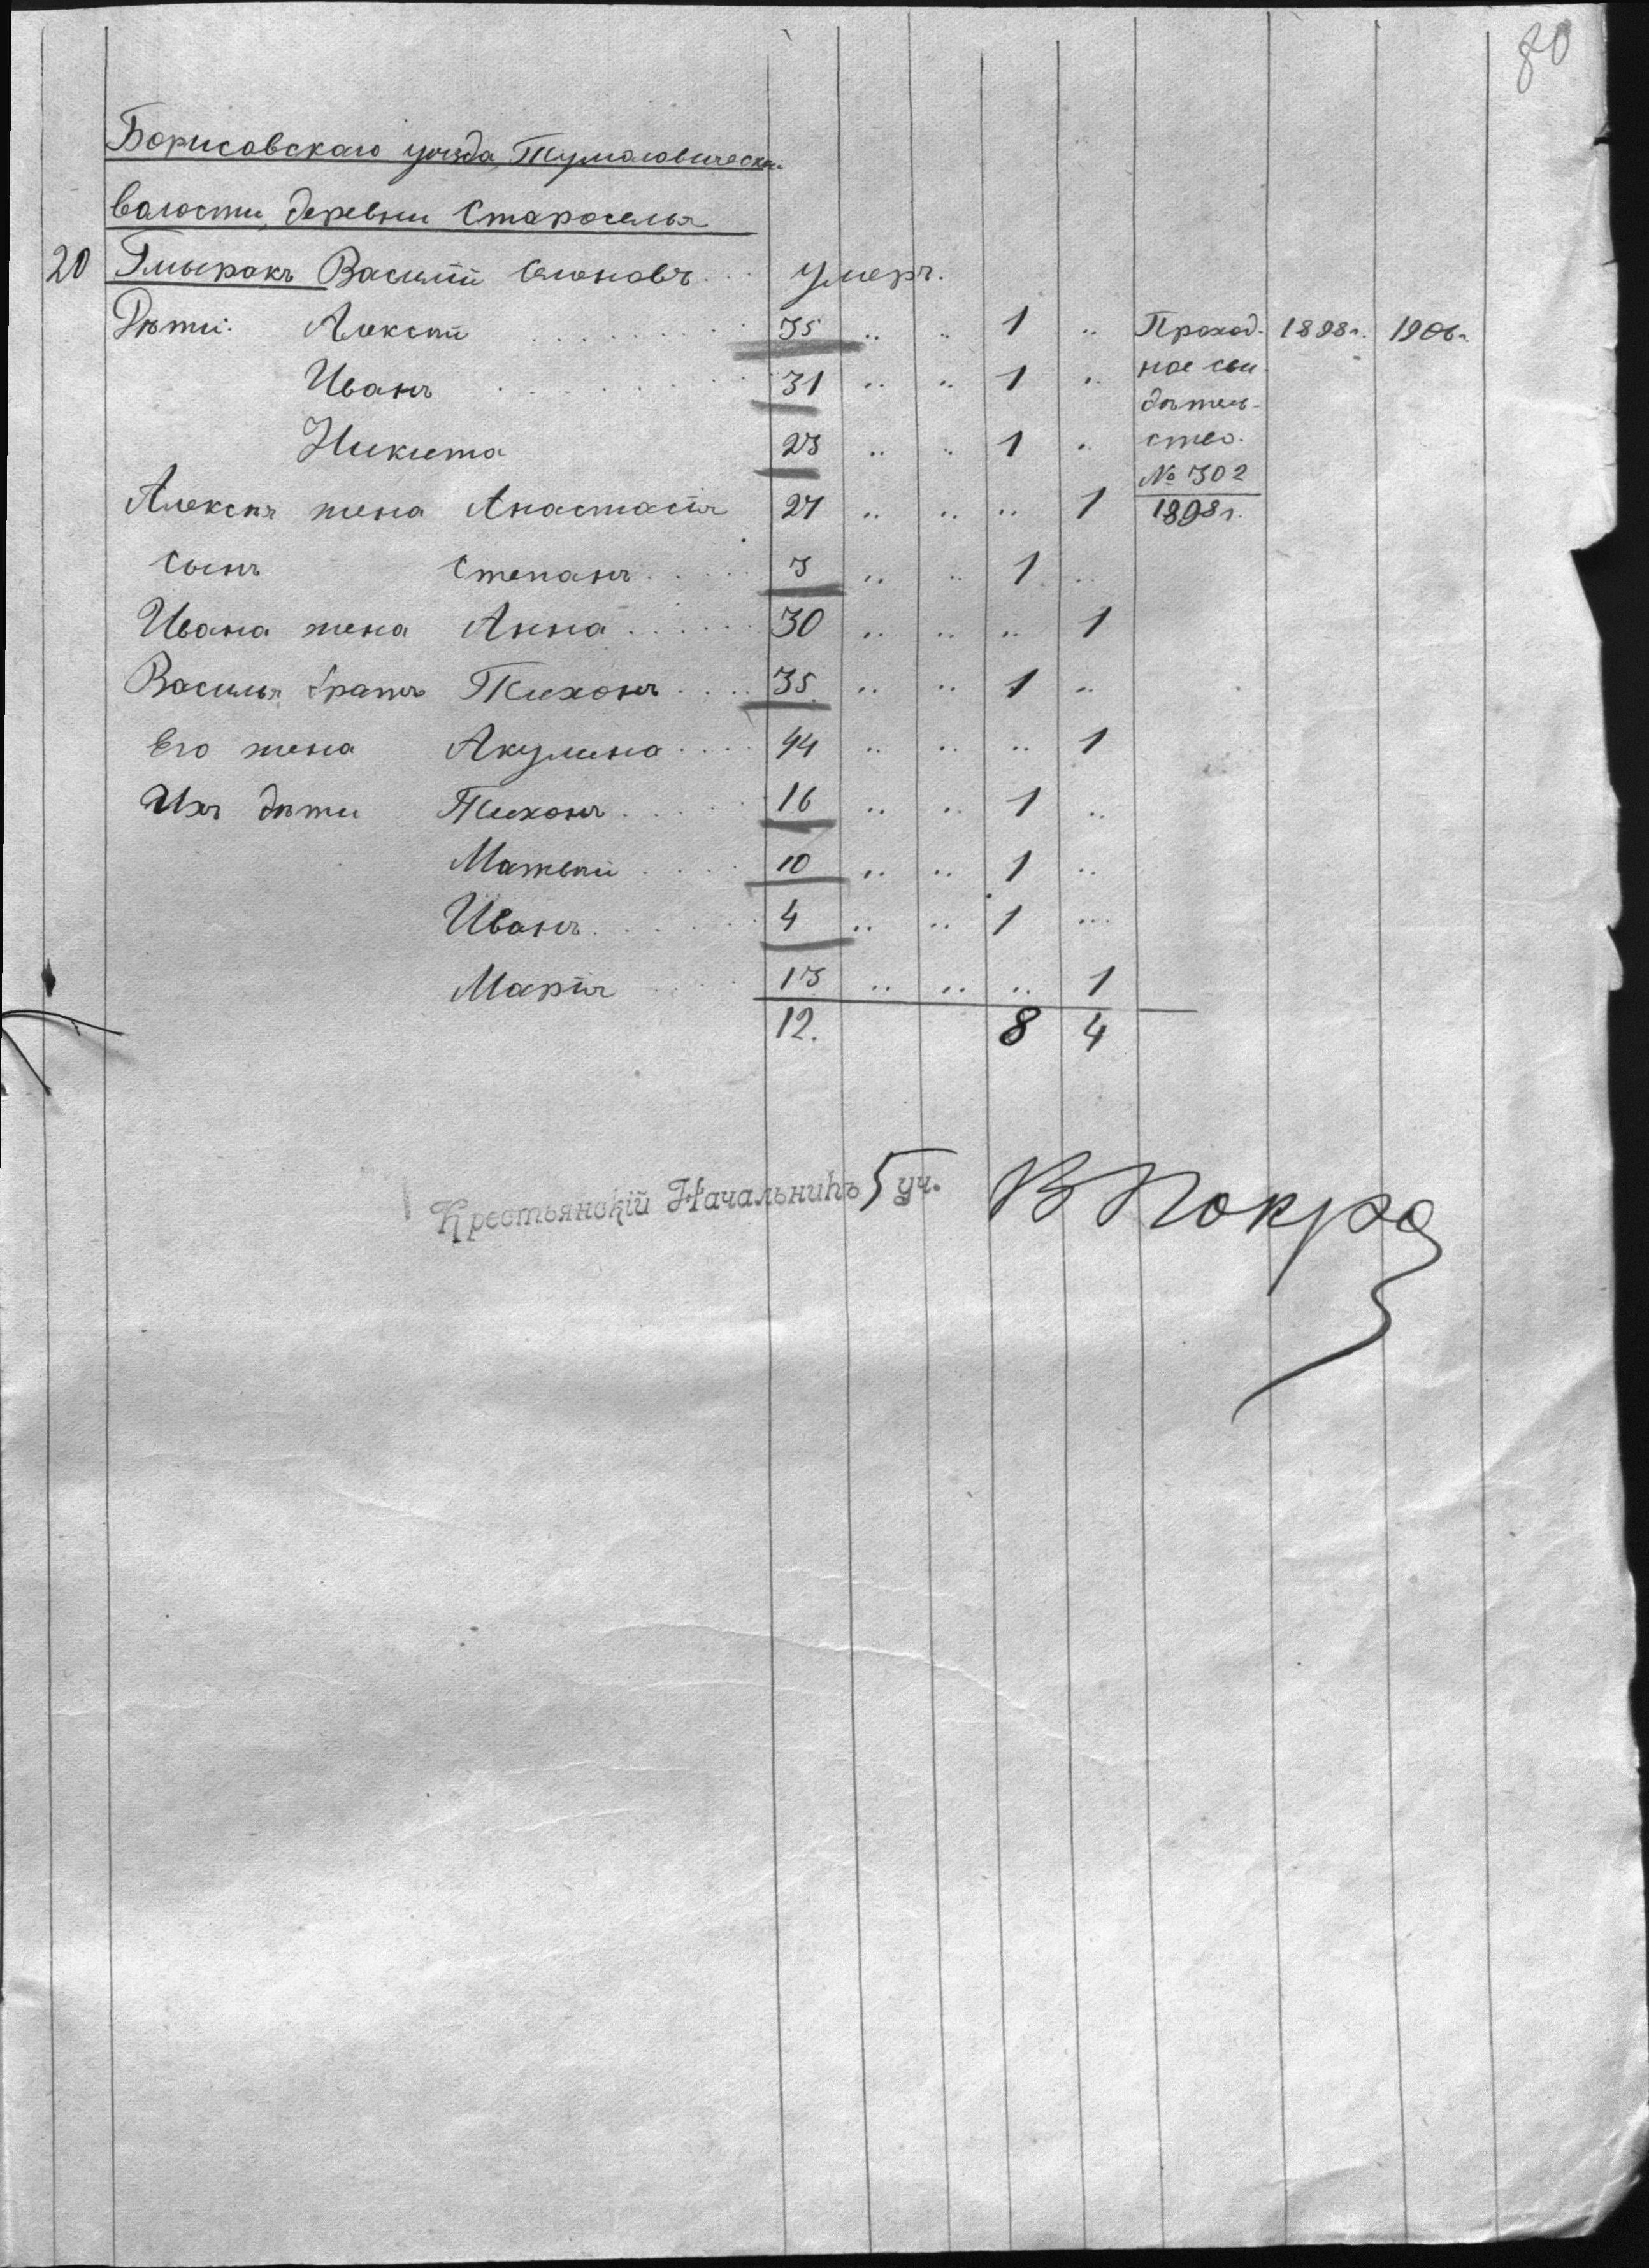 80
Борисовскаго уѣзда, Тумиловическ.
волости, деревни Староселья
20 Гмыракъ Василій Семеновъ . . умеръ.
Дѣти: Алексѣй . . . . . . . 35 .. .. 1 .. Проход- 1898г. 1906г.
Иванъ . . . . . . . 31 .. .. 1 .. ное сви-
дѣтель-
Никита 23 .. .. 1 .. ство.
№ 302
Алексѣя жена Анастасія 27 .. .. .. 1 1898г.
Сынъ Степанъ . . . . 3 .. .. 1 ..
Ивана жена Анна . . . . . . 30 .. .. .. 1
Василья братъ Тихонъ . . . . 35 .. .. 1 ..
Его жена Акулина . . . . 44 .. .. .. 1
Ихъ дѣти Тихонъ . . . . 16 .. .. 1 ..
Матвѣй . . . . 10 .. .. 1 ..
Иванъ . . . . . . 4 .. .. 1 ...
Марія . . . . 13 .. .. .. 1
12. 8 4
Крестьянскій Начальникъ 5 уч. В Покро